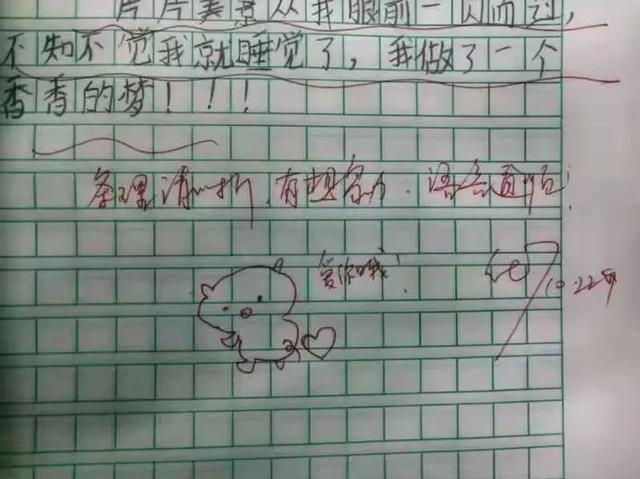 片片美景从我眼前一闪而过,
不知不觉我就睡觉了,我做了一个
香香的梦!!!
条理清晰,有想象力.语句通顺!
爱你哦!
10.22日